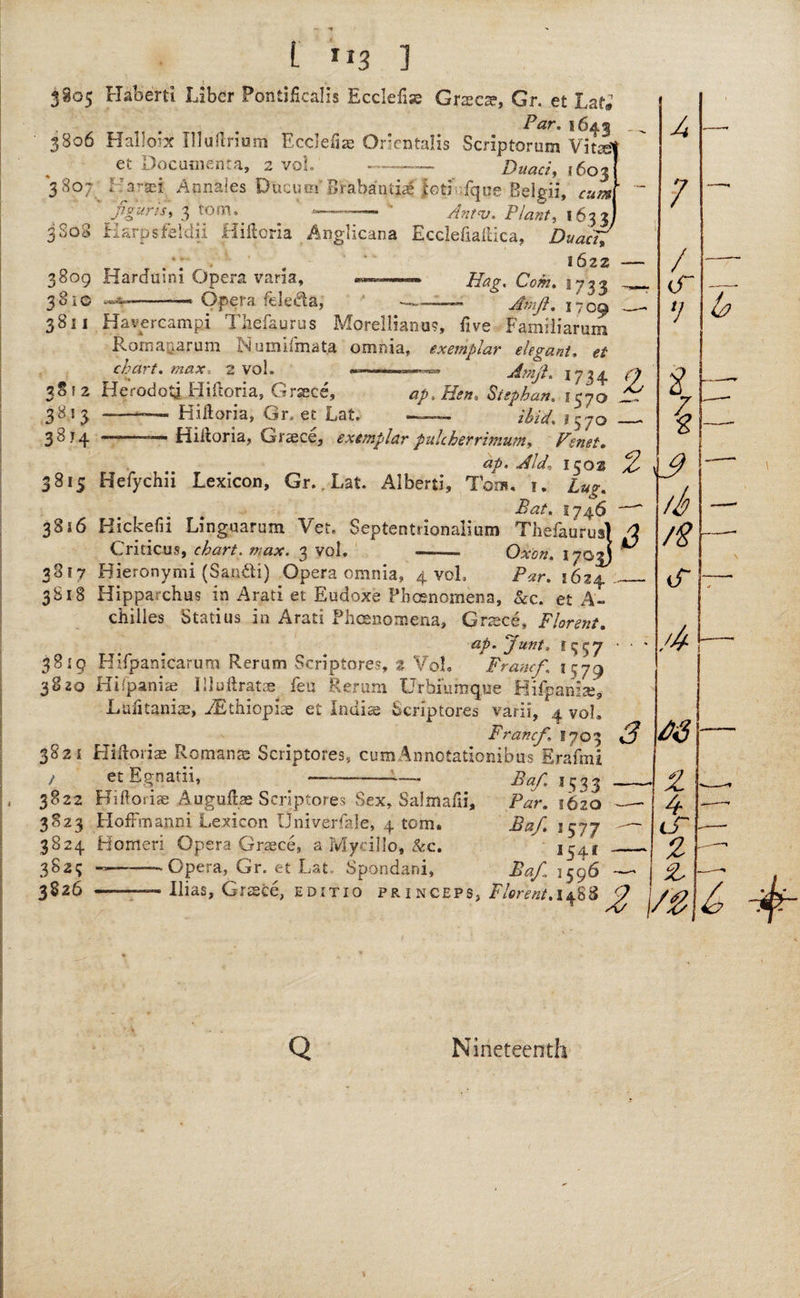 [ 113 ]
3805 Haberti Liber Pontificalis Ecclefiæ Græcæ, Gr. et Lat.
Par. 1643 — 4 —
3806 Halloix Illuftrium Ecclefiæ Orientalis Scriptorum Vitæ
et Documenta, 2 vol. —— Duaci, 1603
3807 Haræi Annales Ducum Brabantiæ totiufque Belgii, cum — 7 —
figuris, 3 tom. —— Antv. Plant, 1633
3808 Harpsfeldii Hiftoria Anglicana Ecclefiaftica, Duaci,
1622 — / —
3809 Harduini Opera varia, —— Hag. Com. 1733 —
3810 —— Opera felecta, —— Amft. 1709 —
3811 Havercampi Thefaurus Morellianus, five Familiarum
Romanarum Numifmata omnia, exemplar elegant. et
chart. max. 2 vol. —— Amft. 1734 2 2 —
3812 Herodoti Hiftoria, Græce, ap. Hen. Stephan. 1570 —
3813 —— Hiftoria, Gr. et Lat. —— ibid. 1570 —
3814 —— Hiftoria, Græce, exemplar pulcherrimum, Venet.
ap. Ald. 1502 2 9 —
3815 Hefychii Lexicon, Gr. Lat. Alberti, Tom. 1. Lug.
Bat. 1746 — 16 —
3816 Hickefii Linguarum Vet. Septentrionalium Thefaurus 3 18 —
Criticus, chart. max. 3 vol. —— Oxon. 1705
3817 Hieronymi (Sancti) Opera omnia, 4 vol. Par. 1624 — 5 —
3818 Hipparchus in Arati et Eudoxe Phœnomena, &c. et A-
chilles Statius in Arati Phœnomena, Græcé, Florent.
ap. Junt. 1557 . . . 14 —
3819 Hifpanicarum Rerum Scriptores, 2 Vol. Francf. 1579
3820 Hifpaniæ Illuftratæ feu Rerum Urbiumque Hifpaniæ,
Lufitaniæ, Æthiopiæ et Indiæ Scriptores varii, 4 vol.
Francf. 1703 3 —
3821 Hiftoriæ Romanæ Scriptores, cum Annotationibus Erafmi
et Egnatii, —— Baf. 1533 — 2 —
3822 Hiftoriæ Auguftæ Scriptores Sex, Salmafii, Par. 1620 — 4 —
3823 Hoffmanni Lexicon Univerfale, 4 tom. Baf. 1577 — 5 —
3824 Homeri Opera Græcé, a Mycillo, &c. 1541 — 2 —
3825 —— Opera, Gr. et Lat. Spondani, Baf. 1596 — 2 —
3826 —— Ilias, Græcé, EDITIO PRINCEPS, Florent. 1488 2 12 6
Q Nineteenth